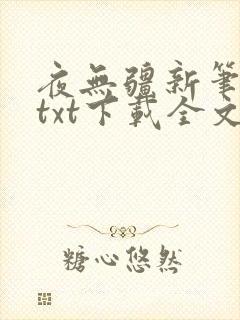 夜無疆新筆
txt下載全文
糖心悠然